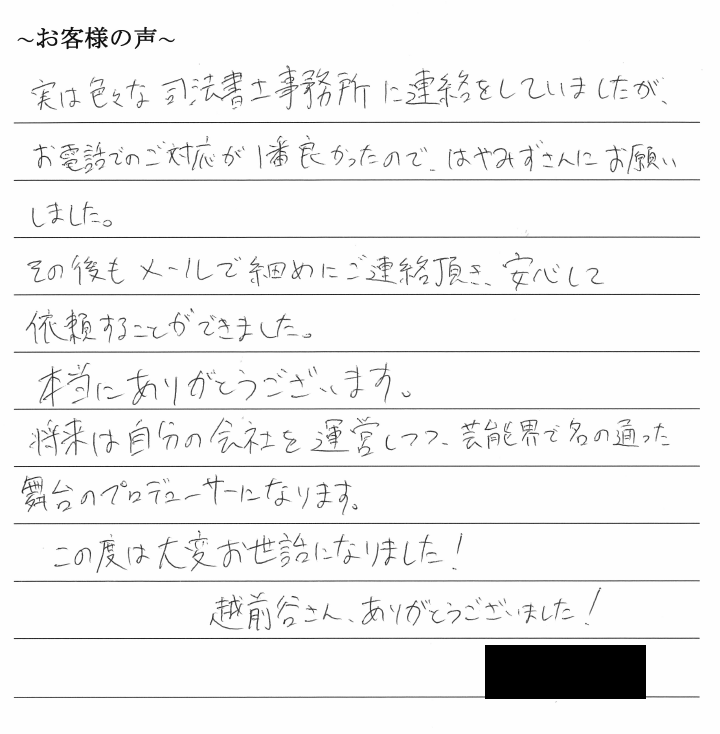 ~お客様の声~
実は色々な司法書士事務所に連絡をしていましたが、
お電話でのご対応が1番良かったので、はやみずさんにお願い
しました。
その後もメールで細めにご連絡頂き、安心して
依頼することができました。
本当にありがとうございます。
将来は自分の会社を運営しつつ、芸能界で名の通った
舞台のプロデューサーになります。
この度は大変お世話になりました!
越前谷さん、ありがとうございました!